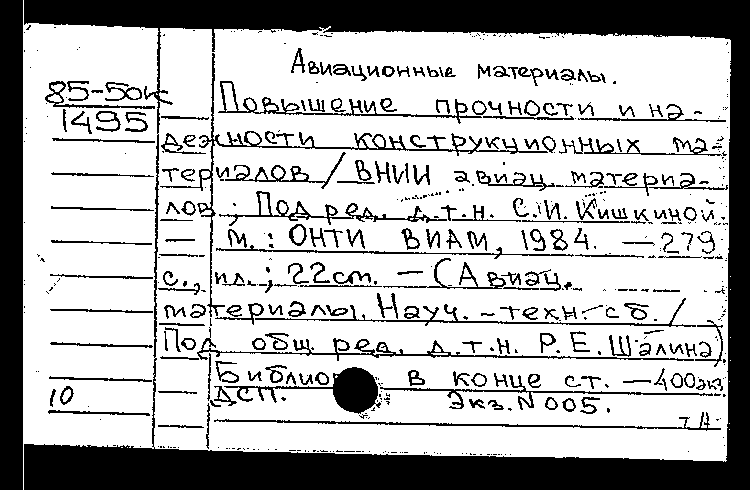 Авиационные материалы.
85-50к
1495
Повышение прочности и на-
дежности конструкционных ма-
териалов / ВНИИ авиац. материа-
лов ; Под ред. д.т.н. С.И. Кишкиной.
— М.: ОНТИ ВИАМ, 1984. — 279
с., ил. ; 22 cm. — (Авиац.
материалы. Науч.-техн. сб. /
Под общ. ред. д.т.н. Р.Е. Шалина)
в конце ст. — 400 экз
10
ДСП. Экз. N 005.